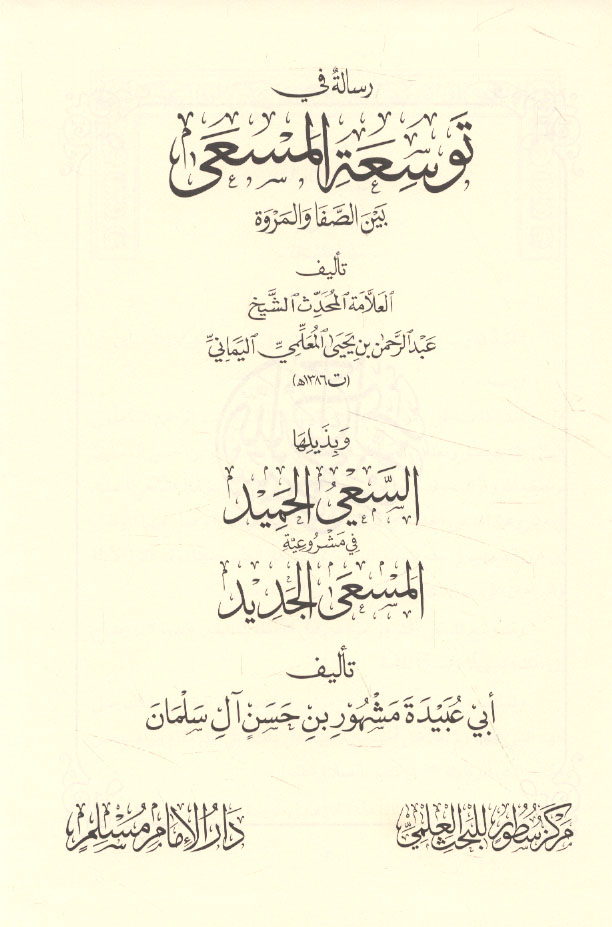 رسالةٌ في
تَوسِعَةِ المَسْعَى
بَيْنَ الصَّفَا وَالمَرْوَة
تأليف
العَلَّامَة المُحَدِّث الشَّيخ
عَبْد الرَّحْمٰن بنِ يَحْيَىٰ المُعَلِّمِيِّ اليَمَانِيِّ
(ت ١٣٨٦ه)
وَبِذَيلِهَا
السَّعْيُ الحَمِيْد
فِي مَشْرُوعِيَّةِ
المَسْعَى الجَدِيْد
تأليف
أبي عُبَيْدَةَ مَشْهُوْرِ بنِ حَسَنٍ آلِ سَلْمَان
مَركزُ سُطُور للبَحث العِلميّ
دَارُ الإمَامِ مُسْلِمٍ